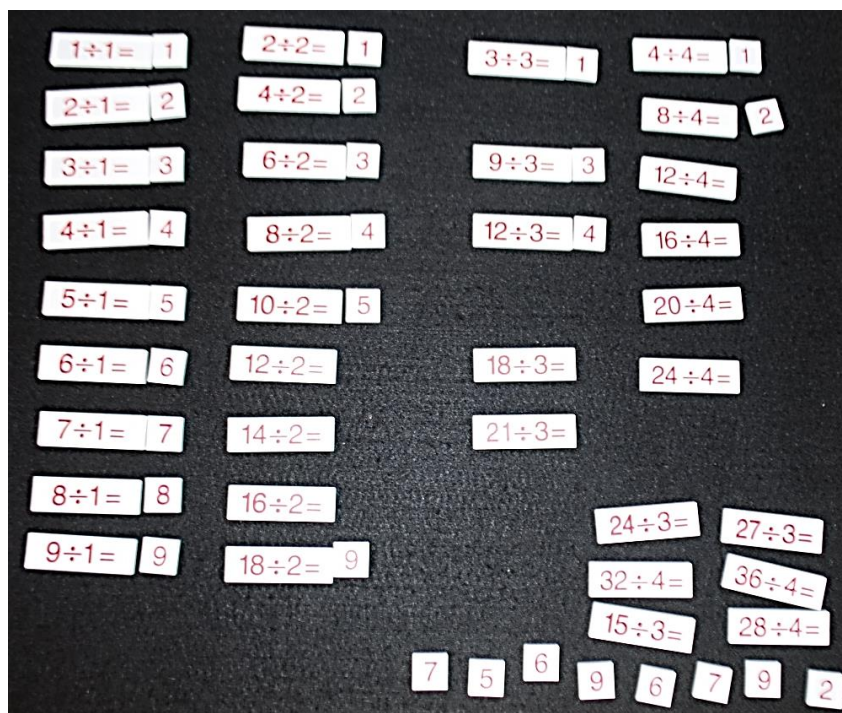 1÷1= 1
2÷1= 2
3÷1= 3
4÷1= 4
5÷1= 5
6÷1= 6
7÷1= 7
8÷1= 8
9÷1= 9
2÷2= 1
4÷2= 2
6÷2= 3
8÷2= 4
10÷2= 5
12÷2=
14÷2=
16÷2=
18÷2= 9
3÷3= 1
9÷3= 3
12÷3= 4
18÷3=
21÷3=
4÷4= 1
8÷4= 2
12÷4=
16÷4=
20÷4=
24÷4=
24÷3= 27÷3=
32÷4= 36÷4=
15÷3= 28÷4=
7 5 6 9 6 7 9 2